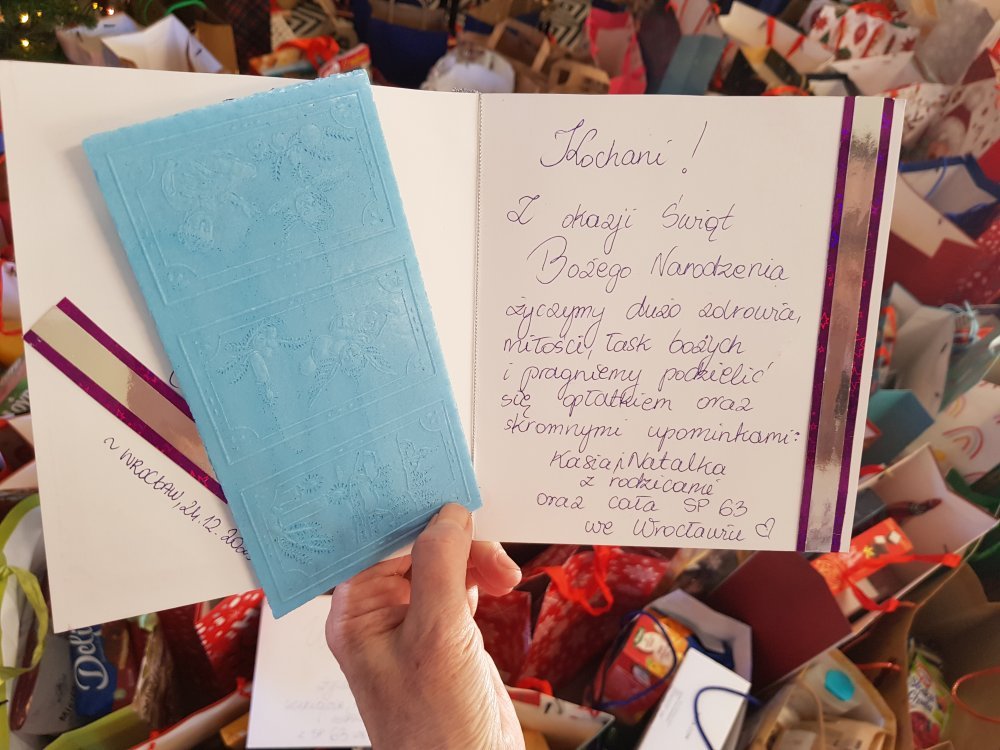 Kochani!
Z okazji Świąt
Bożego Narodzenia
życzymy dużo zdrowia,
miłości, łask bożych
i pragniemy podzielić
się opłatkiem oraz
skromnymi upominkami:
Kasia i Natalka
z rodzicami
oraz cała SP 63
we Wrocławiu
WROCŁAW, 24.12.